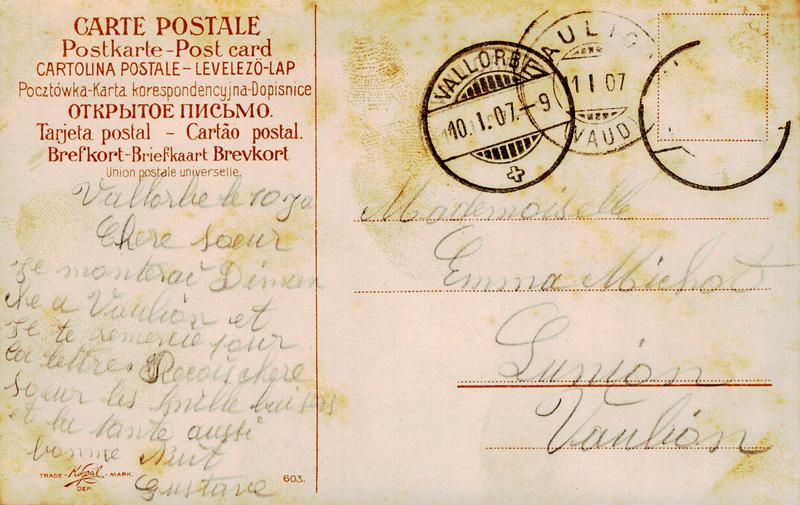 CARTE POSTALE
Postkarte-Post card
CARTOLINA POSTALE - LEVELEZŐ-LAP
Pocztówka-Karta korespondencyjna-Dopisnice
ОТКРЫТОЕ ПИСЬМО.
Tarjeta postal - Cartão postal.
Brefkort-Briefkaart Brevkort
Union postale universelle.
Vallorbe le 10
Chere soeur
Je monterai Diman
che a Vaulion et
Je te remercie pour
ta lettre. Reçois chere
soeur les mille baisers
et la santé aussi
bonne Nuit
Gustave
TRADE- -MARK.
DEP.
603.
VALLORBE
10. I. 07.-9
AULIO
11 I 07
VAUD
Mademoiselle
Emma Michot
Vaulion